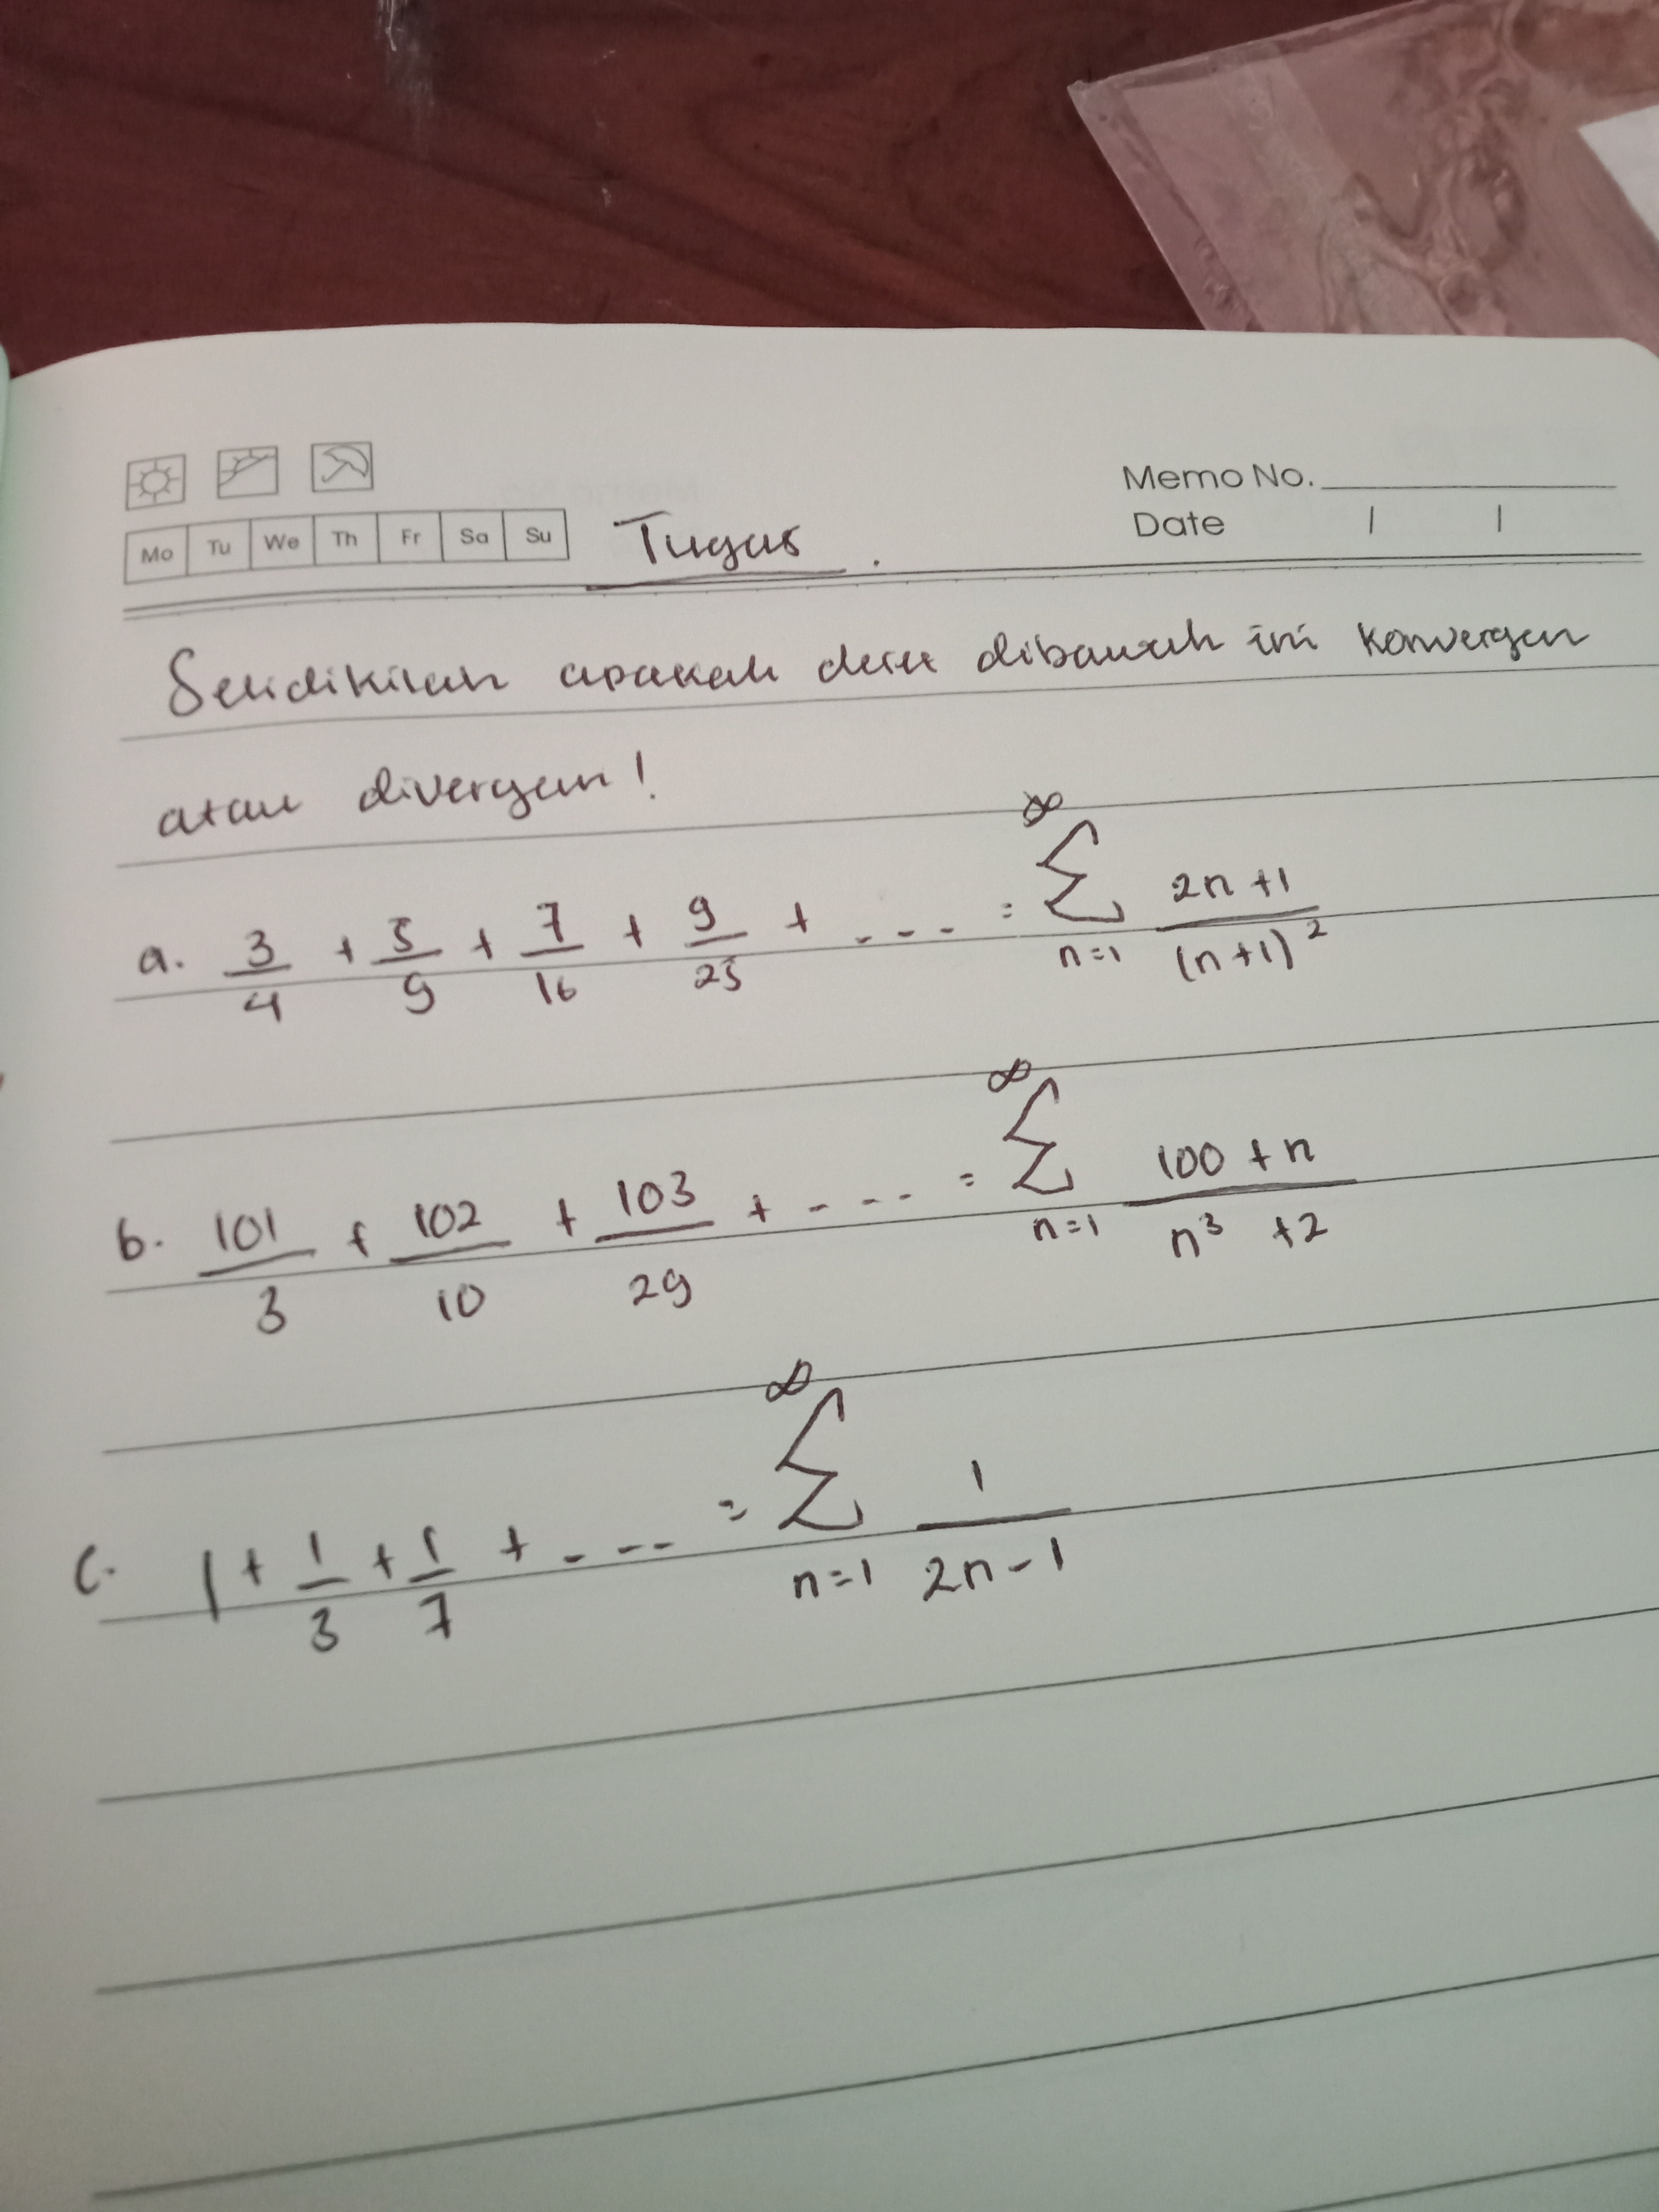 Memo No.
Mo Tu We Th Fr Sa Su Tugas . Date / /
Selidikilah apakah deret dibawah ini konvergen
atau divergen!
a. 3/4 + 5/9 + 7/16 + 9/25 + ---- = ∞ Σ n=1 2n+1/(n+1)²
b. 101/3 + 102/10 + 103/29 + ---- = ∞ Σ n=1 100+n/n³+2
c. 1 + 1/3 + 1/7 + ---- = ∞ Σ n=1 1/2n-1